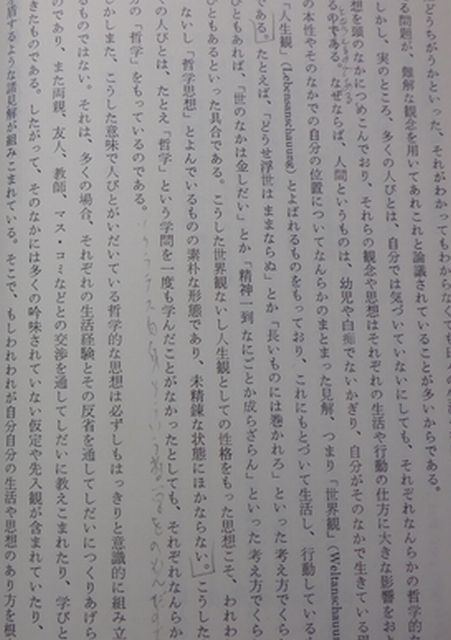 どうちがうかといった、それがわかってもわからなくても
る問題が、難解な観念を用いてあれこれと論議されていることが多いからである。
しかし、実のところ、多くの人びとは、自分では気づいていないにしても、それぞれなんらかの哲学的な
想を頭のなかにつめこんでおり、それらの観念や思想はそれぞれの生活や行動の仕方に大きな影響をお
るのである。なぜならば、人間というものは、幼児や白痴でないかぎり、自分がそのなかで生きている
の本性やそのなかでの自分の位置についてなんらかのまとまった見解、つまり「世界観」(Weltanschauu
「人生観」(Lebensanschauung)とよばれるものをもっており、これにもとづいて生活し、行動している
である。たとえば、「どうせ浮世はままならぬ」とか「長いものには巻かれろ」といった考え方でくら
ともあれば、「世のなかは金しだい」とか「精神一到 なにごとか成らざらん」といった考え方でくら
ともあるといった具合である。こうした世界観ないし人生観としての性格をもった思想こそ、われわ
ないし「哲学思想」とよんでいるものの素朴な形態であり、未精錬な状態にほかならない。こうした
の人びとは、たとえ「哲学」という学問を一度も学んだことがなかったとしても、それぞれなんらか
の「哲学」をもっているのである。
しかしまた、こうした意味で人びとがいだいている哲学的な思想は必ずしもはっきりと意識的に組み立
るものではない。それは、多くの場合、それぞれの生活経験とその反省を通してしだいにつくりあげら
のであり、また両親、友人、教師、マス・コミなどとの交渉を通してしだいに教えこまれたり、学びと
きたものである。したがって、そのなかには多くの吟味されていない仮定や先入観が含まれていたり、
盾するような諸見解が組みこまれている。そこで、もしわれわれが自分自分の生活や思想のあり方を根